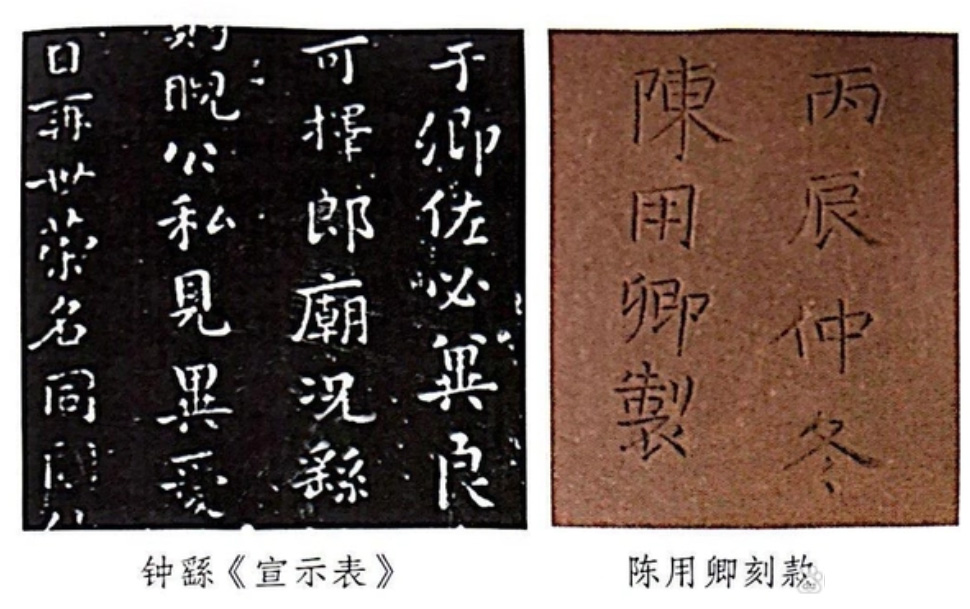 于卿佐必冀良
可擇郎廟況繇
睨公私見異愛
日再世榮名同國
丙辰仲冬
陳用卿製
钟繇《宣示表》
陈用卿刻款